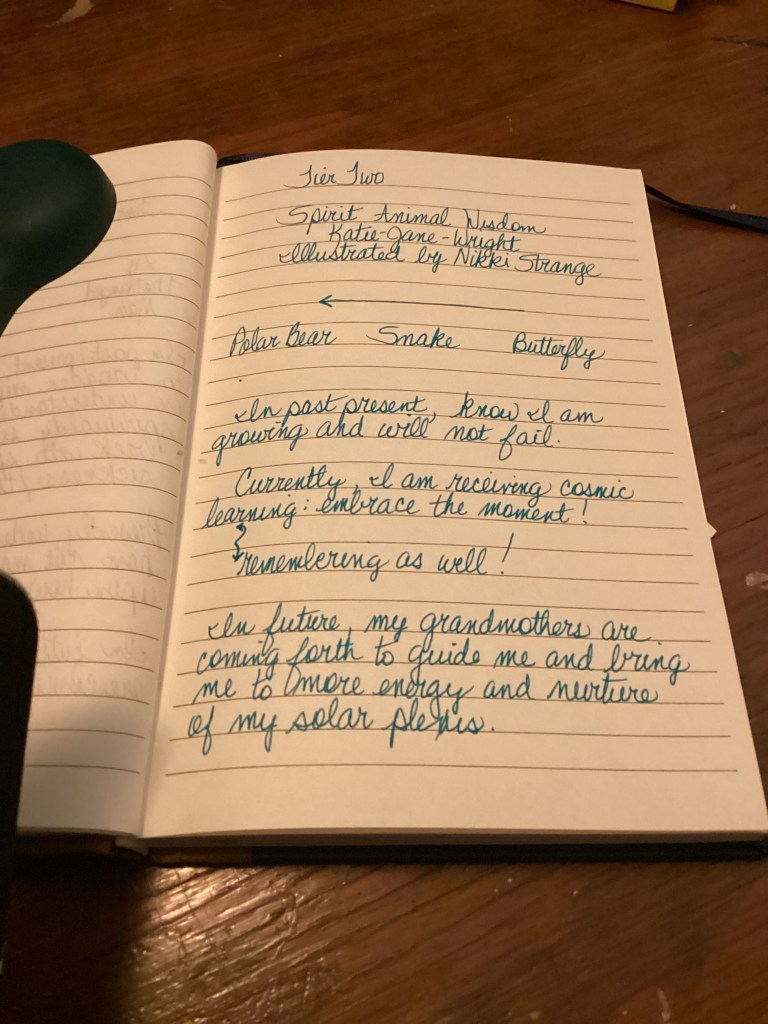 Tier Two
Spirit Animal Wisdom
Katie-Jane-Wright
Illustrated by Nikki Strange
Polar Bear Snake Butterfly
In past present, know I am
growing and will not fail.
Currently, I am receiving cosmic
learning: embrace the moment!
remembering as well!
In future, my grandmothers are
coming forth to guide me and bring
me to more energy and nurture
of my solar plexis.